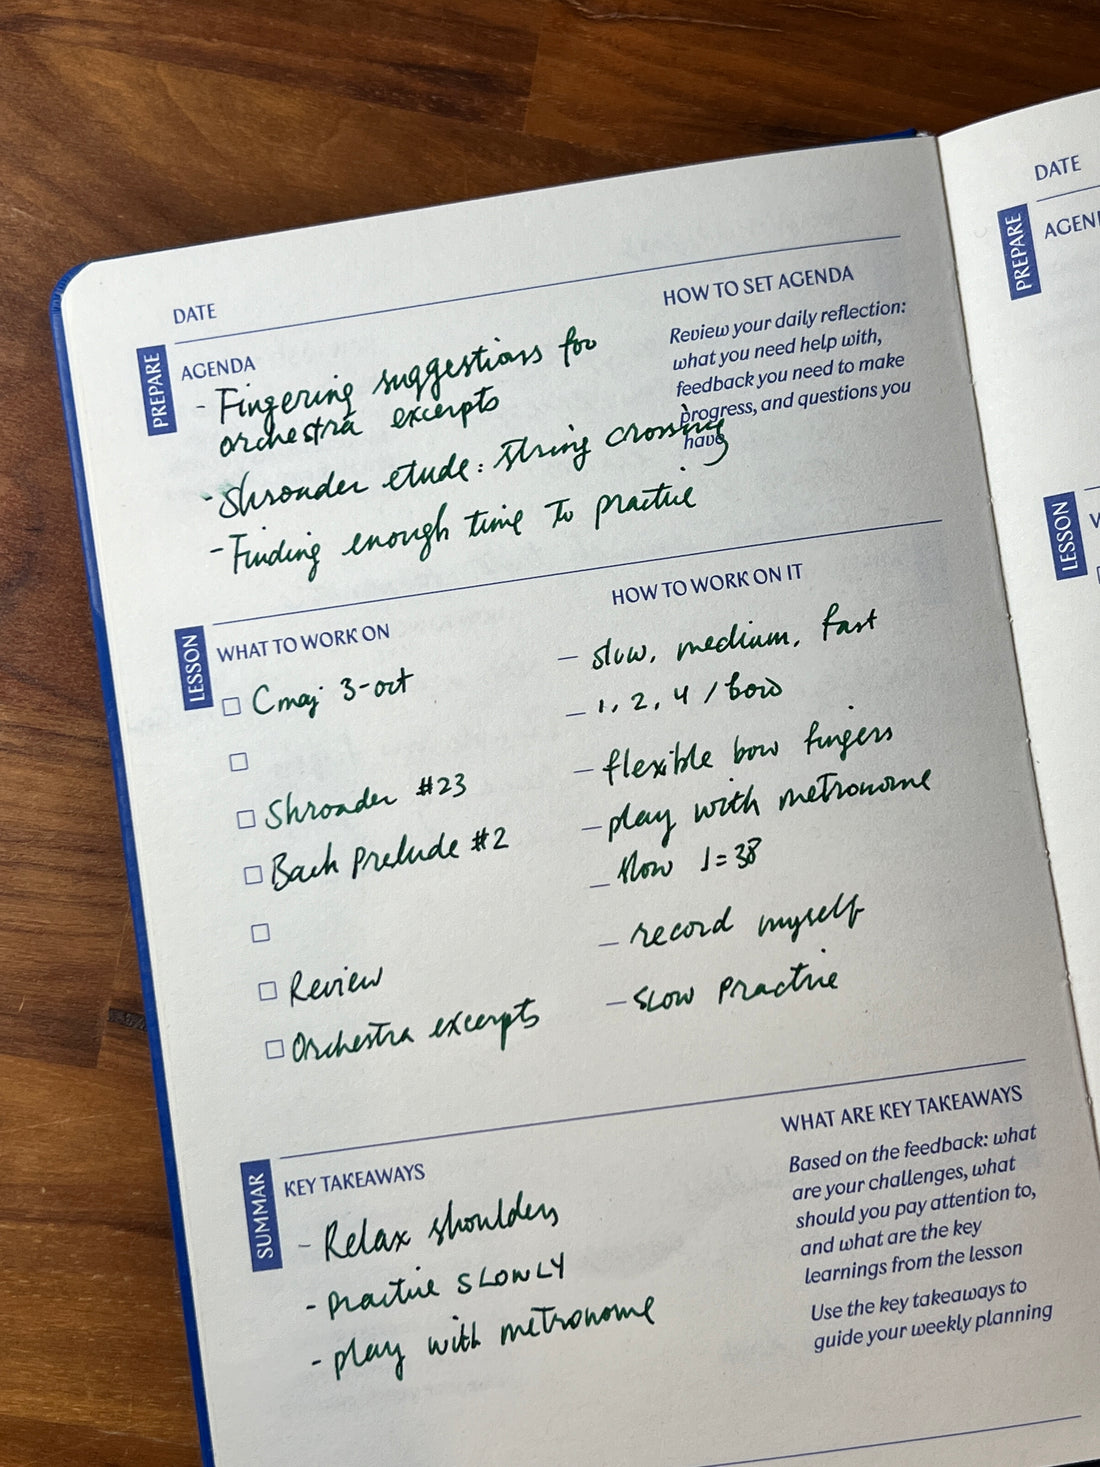 DATE
PREPARE
AGENDA
- Fingering suggestions for
orchestra excerpts
- Shroader etude: string crossing
- Finding enough time to practice
HOW TO SET AGENDA
Review your daily reflection:
what you need help with,
feedback you need to make
progress, and questions you
have
LESSON
WHAT TO WORK ON
Cmaj 3-oct
Shroader #23
Bach Prelude #2
Review
Orchestra excerpts
HOW TO WORK ON IT
- slow, medium, fast
- 1, 2, 4 / bow
- flexible bow fingers
- play with metronome
- slow ♩=38
- record myself
- slow practice
SUMMAR
KEY TAKEAWAYS
- Relax shoulders
- practice SLOWLY
- play with metronome
WHAT ARE KEY TAKEAWAYS
Based on the feedback: what
are your challenges, what
should you pay attention to,
and what are the key
learnings from the lesson
Use the key takeaways to
guide your weekly planning
DATE
PREPARE
AGEN
LESSON